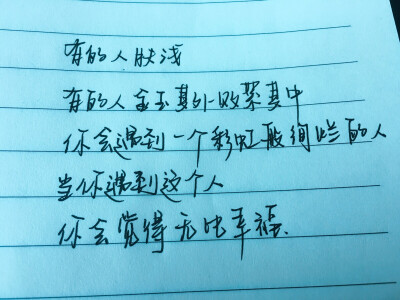 有的人肤浅
有的人金玉其外败絮其中
你会遇到一个彩虹般绚烂的人
当你遇到这个人
你会觉得无比幸福.